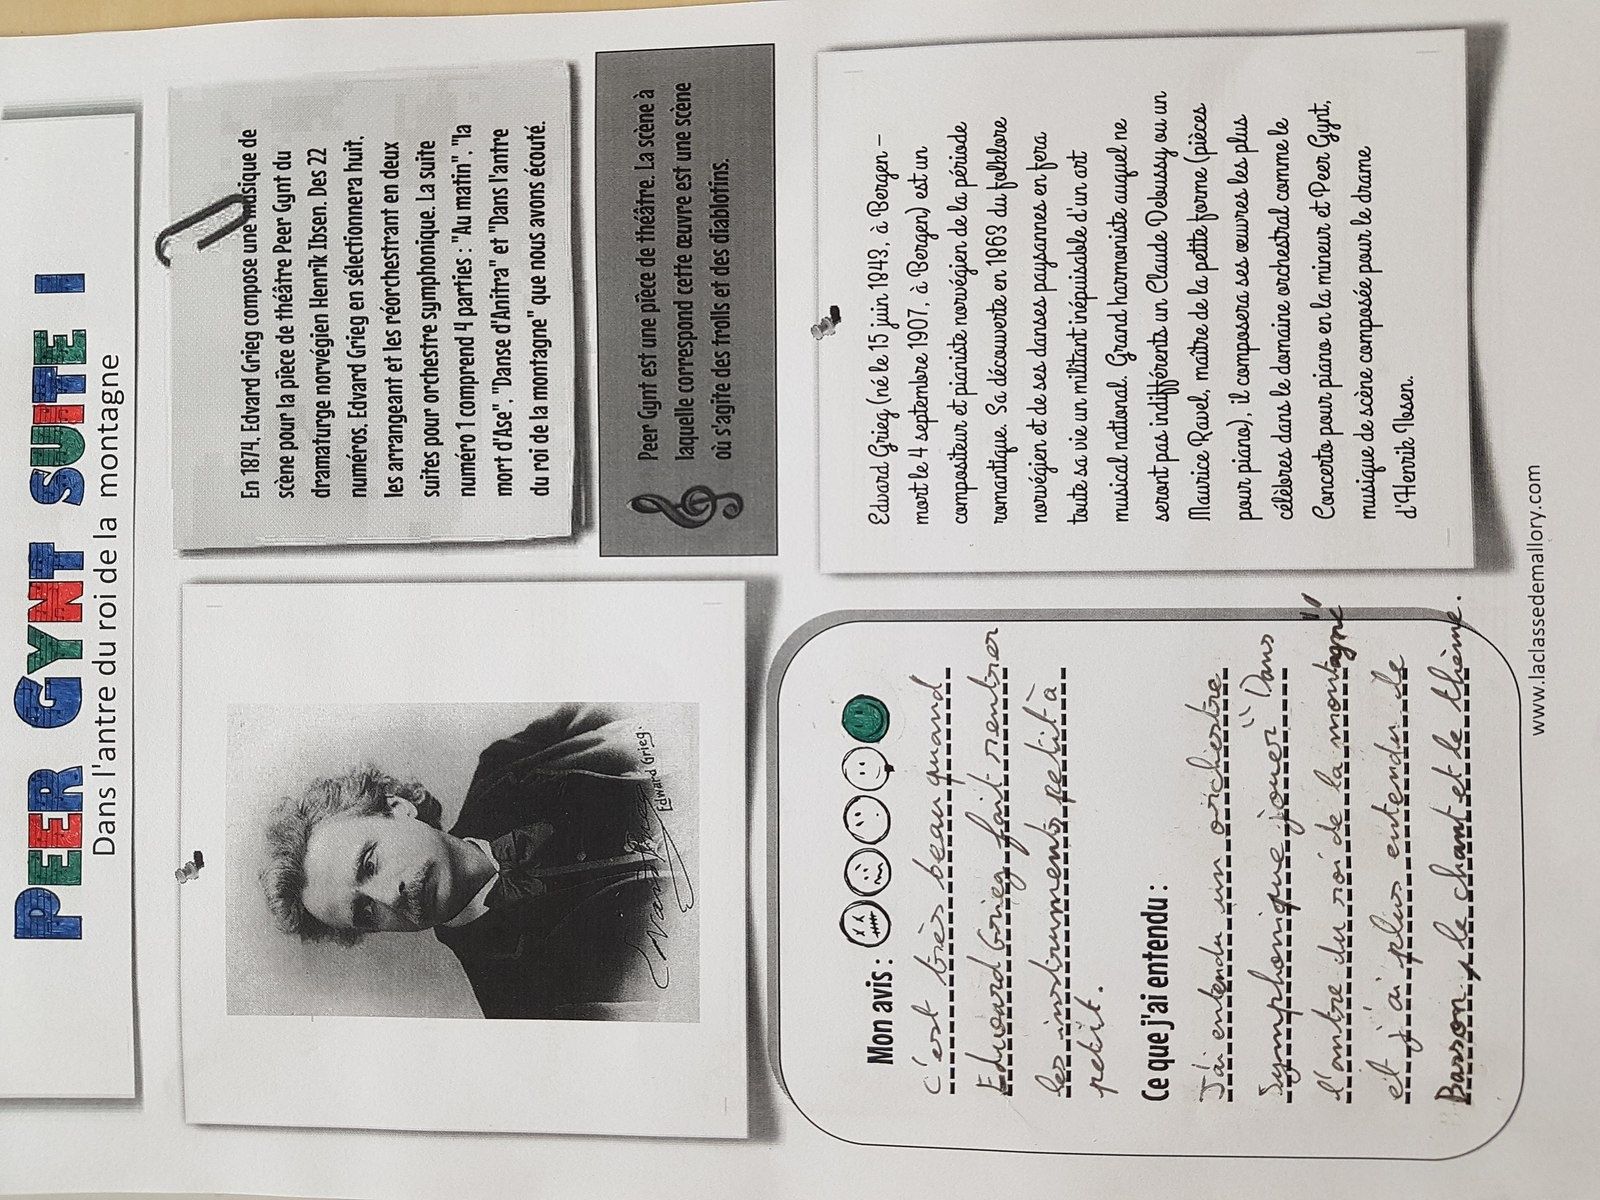 PEER GYNT SUITE I
Dans l'antre du roi de la montagne
Edward Grieg.
En 1874, Edvard Grieg compose une musique de
scène pour la pièce de théâtre Peer Gynt du
dramaturge norvégien Henrik Ibsen. Des 22
numéros, Edvard Grieg en sélectionnera huit,
les arrangeant et les réorchestrant en deux
suites pour orchestre symphonique. La suite
numéro 1 comprend 4 parties : "Au matin", "la
mort d'Ase", "Danse d'Anitra" et "Dans l'antre
du roi de la montagne" que nous avons écouté.
Peer Gynt est une pièce de théâtre. La scène à
laquelle correspond cette œuvre est une scène
où s'agite des trolls et des diablotins.
Mon avis :
c'est très beau quand
Edward Grieg fait rentrer
les instruments petit à
petit.
Ce que j'ai entendu :
J'ai entendu un orchestre
symphonique jouer "Dans
l'antre du roi de la montagne"
et j'ai plus entendu le
Basson, le chant et le thème.
Edvard Grieg (né le 15 juin 1843, à Bergen –
mort le 4 septembre 1907, à Bergen) est un
compositeur et pianiste norvégien de la période
romantique. Sa découverte en 1863 du folklore
norvégien et de ses danses paysannes en fera
toute sa vie un militant inépuisable d'un art
musical national. Grand harmoniste auquel ne
seront pas indifférents un Claude Debussy ou un
Maurice Ravel, maître de la petite forme (pièces
pour piano), il composera ses œuvres les plus
célèbres dans le domaine orchestral comme le
Concerto pour piano en la mineur et Peer Gynt,
musique de scène composée pour le drame
d'Henrik Ibsen.
www.laclassedemallory.com